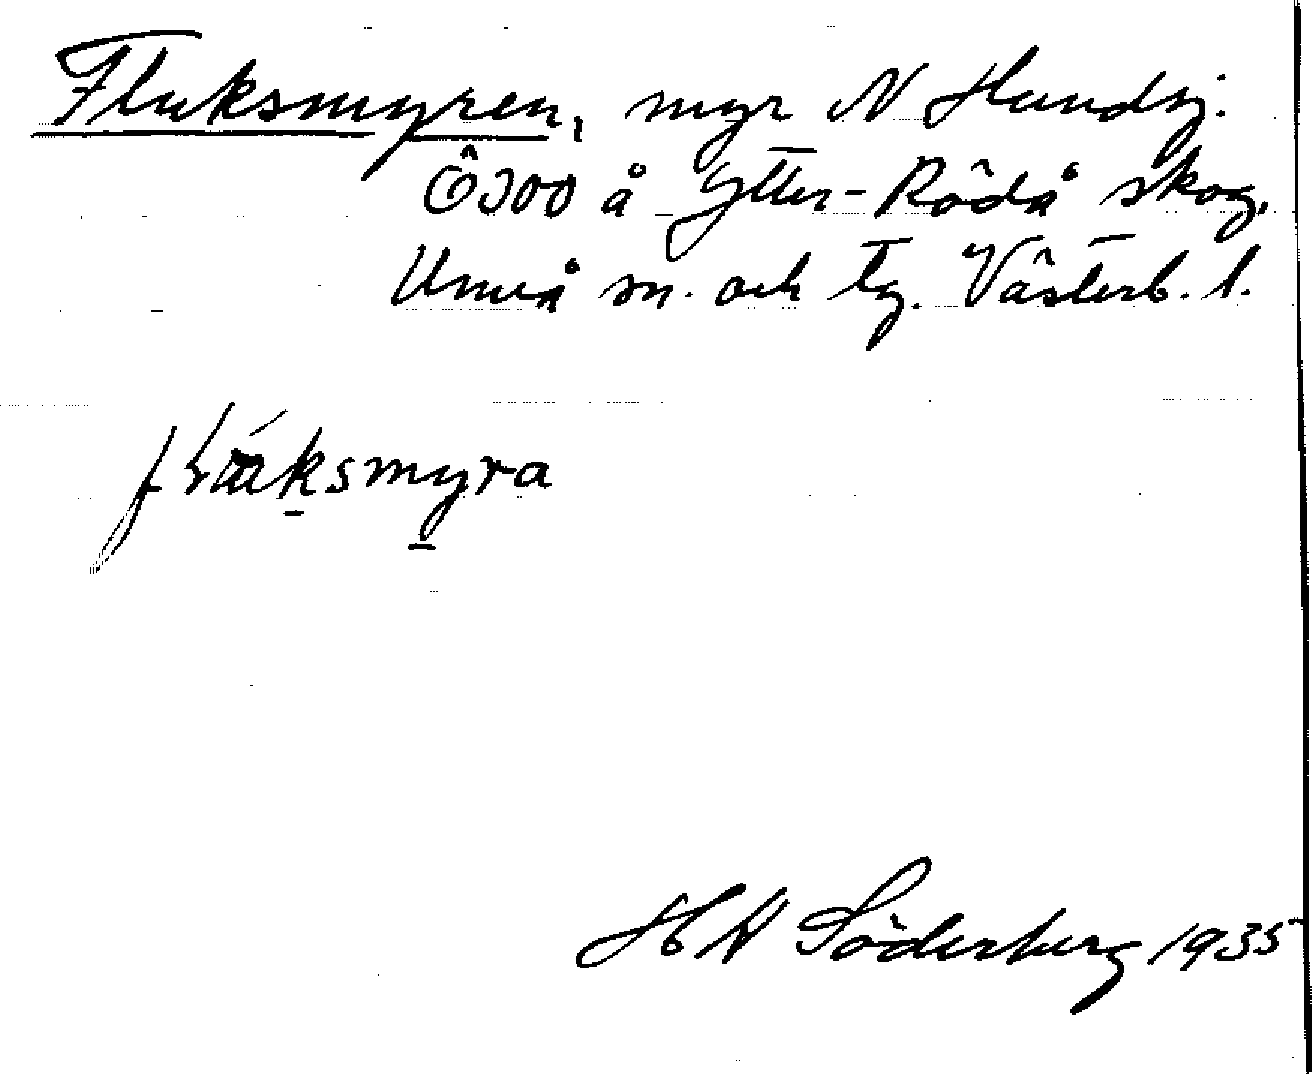 Fluksmyren, myr N Hundsj.
Ö300 å Ytter-Rödå skog,
Umeå sn. och tg. Västerb. l.
H N Söderberg 1935